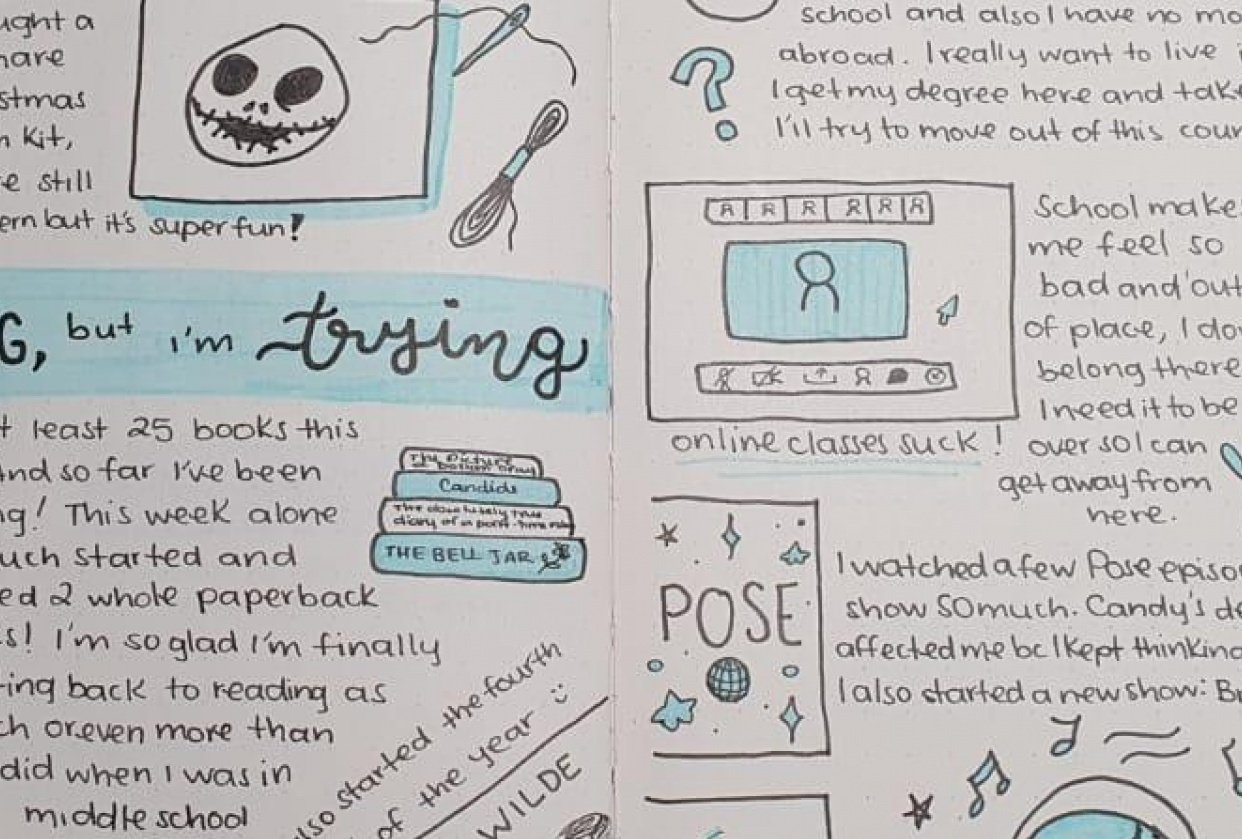 ught a
hare
stmas
n kit,
e still
ern but it's super fun!
G, but i'm trying
t least 25 books this
And so far I've been
ng! This week alone
uch started and
ed 2 whole paperback
s! I'm so glad I'm finally
ing back to reading as
ch or even more than
did when I was in
middle school
The Picture
Dorian Gray
Candide
The absolutely true
diary of a part-time
THE BELL JAR
also started the fourth
of the year :)
WILDE
school and also I have no mo
abroad. I really want to live i
?
I get my degree here and take
I'll try to move out of this coun
School make
me feel so
bad and out
of place, I don
belong there
I need it to be
over so I can
get away from
here.
online classes suck!
POSE
I watched a few Pose episo
show SO much. Candy's de
affected me bc I kept thinking
I also started a new show: Br